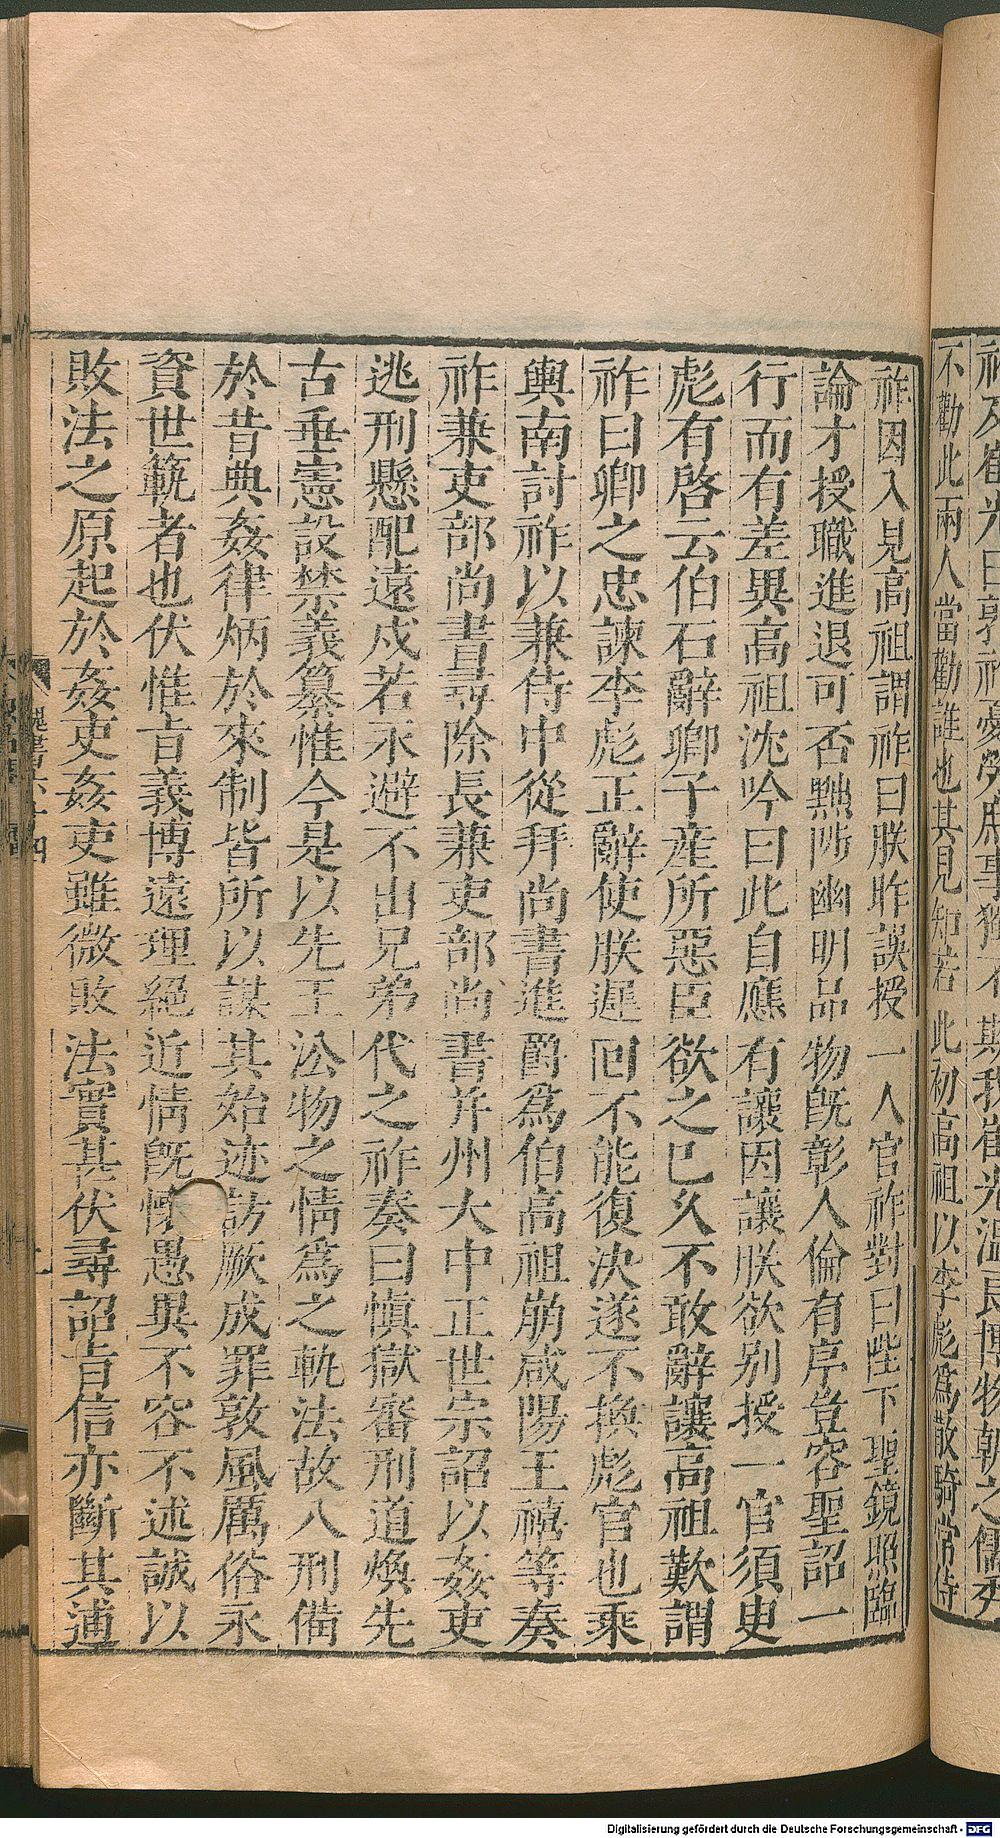 不勸此兩人當勸誰也其見知若此初高祖以李彪爲散騎常侍
祚因入見高祖謂祚曰朕昨誤授一人官祚對曰陛下聖鏡照臨
論才授職進退可否黜陟幽明品物既彰人倫有序豈容聖詔一
行而有差異高祖沈吟曰此自應有讓因讓朕欲別授一官須臾
彪有啓云伯石辭卿子產所惡臣欲之巳久不敢辭讓高祖歎謂
祚曰卿之忠諫李彪正辭使朕遲回不能復決遂不換彪官也乘
輿南討祚以兼侍中從拜尚書進爵爲伯高祖崩咸陽王禧等奏
祚兼吏部尚書尋除長兼吏部尚書并州大中正世宗詔以姦吏
逃刑懸配遠戍若永避不出兄弟代之祚奏曰愼獄審刑道煥先
古垂憲設禁義纂惟今是以先王沿物之情爲之軌法故八刑備
於昔典姦律炳於來制皆所以謀其始迹訪厥成罪敦風厲俗永
資世範者也伏惟旨義博遠理絕近情旣懷愚異不容不述誠以
敗法之原起於姦吏姦吏雖微敗法實甚伏尋詔旨信亦斷其逋
魏書六十四